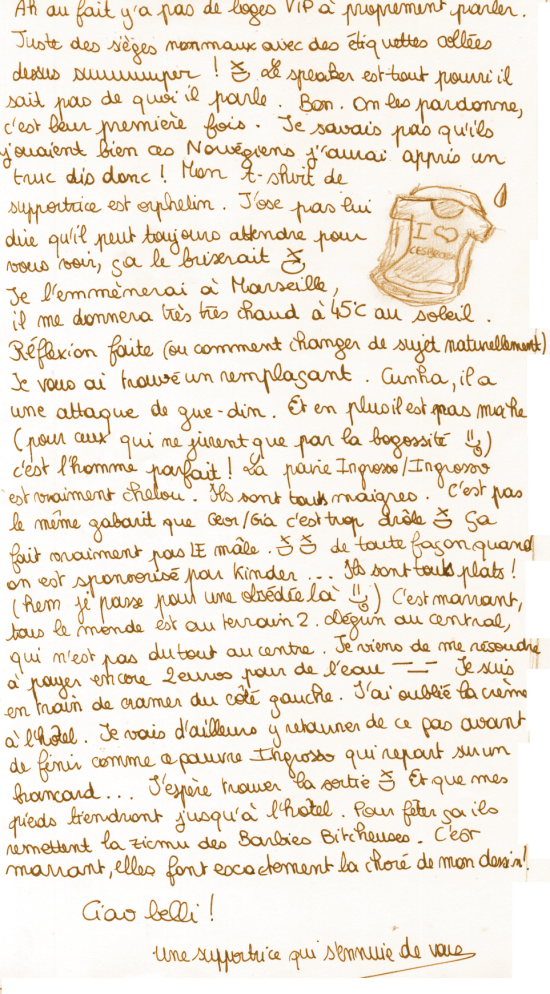 Ah au fait y'a pas de loges VIP à proprement parler.
Juste des sièges normaux avec des étiquettes collées
dessus suuuuuuper ! Le speaker est tout pourri il
sait pas de quoi il parle. Bon. On les pardonne,
c'est leur première fois. Je savais pas qu'ils
jouaient bien ces Norvégiens j'aurai appris un
truc dis donc ! Mon T-shirt de
supportrice est orphelin. J'ose pas lui
dire qu'il peut toujours attendre pour
vous voir, ça le briserait
I ♡
CESBRON
Je l'emmènerai à Marseille,
il me donnera très très chaud à 45°C au soleil.
Réflexion faite (ou comment changer de sujet naturellement)
Je vous ai trouvé un remplaçant. Cunha, il a
une attaque de gue-din. Et en plus il est pas moche
(pour ceux qui ne jurent que par la bogossité)
c'est l'homme parfait ! La paire Ingrosso/Ingrosso
est vraiment chelou. Ils sont tous maigres. C'est pas
le même gabarit que Geor/Gia c'est trop drôle Ça
fait vraiment pas LE mâle. de toute façon quand
on est sponsorisé par Kinder... Ils sont tous plats !
(hem je passe pour une obsédée là) C'est marrant,
tous le monde est au terrain 2. Dégun au central,
qui n'est pas du tout au centre. Je viens de me résoudre
à payer encore 2euros pour de l'eau Je suis
en train de cramer du côté gauche. J'ai oublié la crème
à l'hôtel. Je vais d'ailleurs y retourner de ce pas avant
de finir comme ce pauvre Ingrosso qui repart sur un
brancard... J'espère trouver la sortie Et que mes
pieds tiendront jusqu'à l'hôtel. Pour fêter ça ils
remettent la zicmu des Barbies Bitcheuses. C'est
marrant, elles font exactement la choré de mon dessin!
Ciao belli !
Une supportrice qui s'ennuie de vous